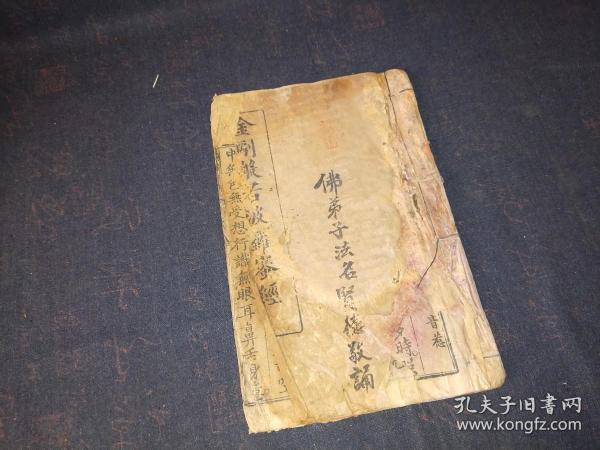 佛弟子法名賢德敬誦
金剛般若波羅密經
中無色無受想行識無眼耳鼻舌身意
時
孔夫子旧书网
www.kongfz.com